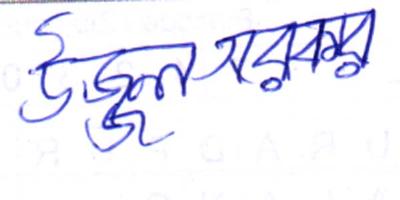 উজ্জ্বল সরকার